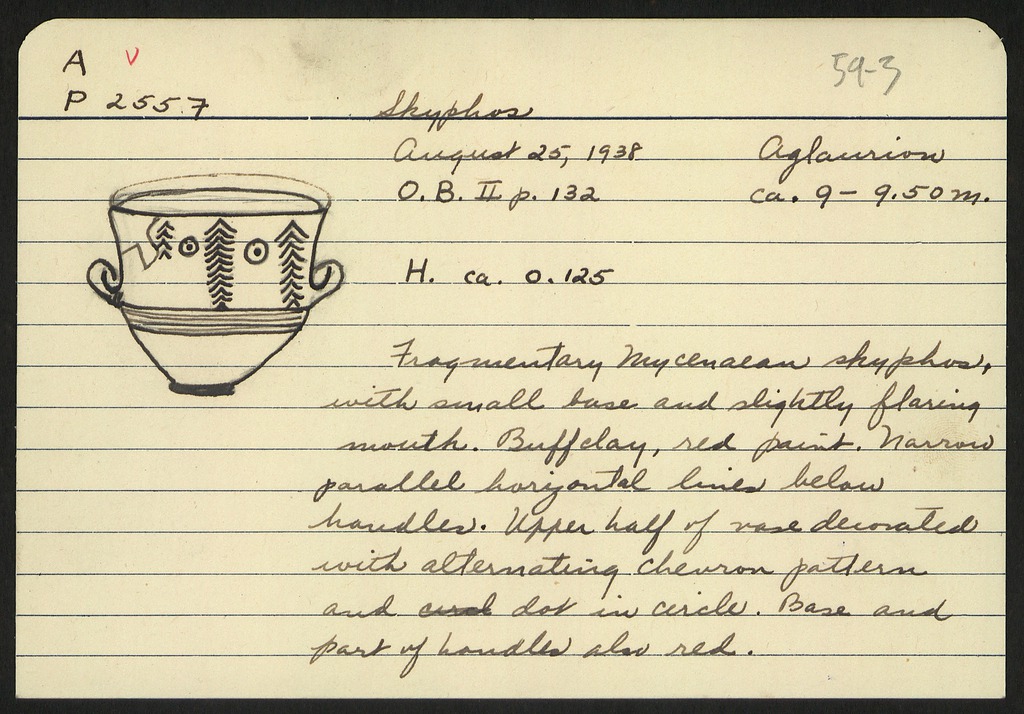 A v 59-3
P 2557
Skyphos
August 25, 1938 Aglaurion
O.B. II p. 132 ca. 9 - 9.50 m.
H. ca. 0.125
Fragmentary Mycenaean skyphos,
with small base and slightly flaring
mouth. Buff clay, red paint. Narrow
parallel horizontal lines below
handles. Upper half of vase decorated
with alternating chevron pattern
and dot in circle. Base and
part of handles also red.